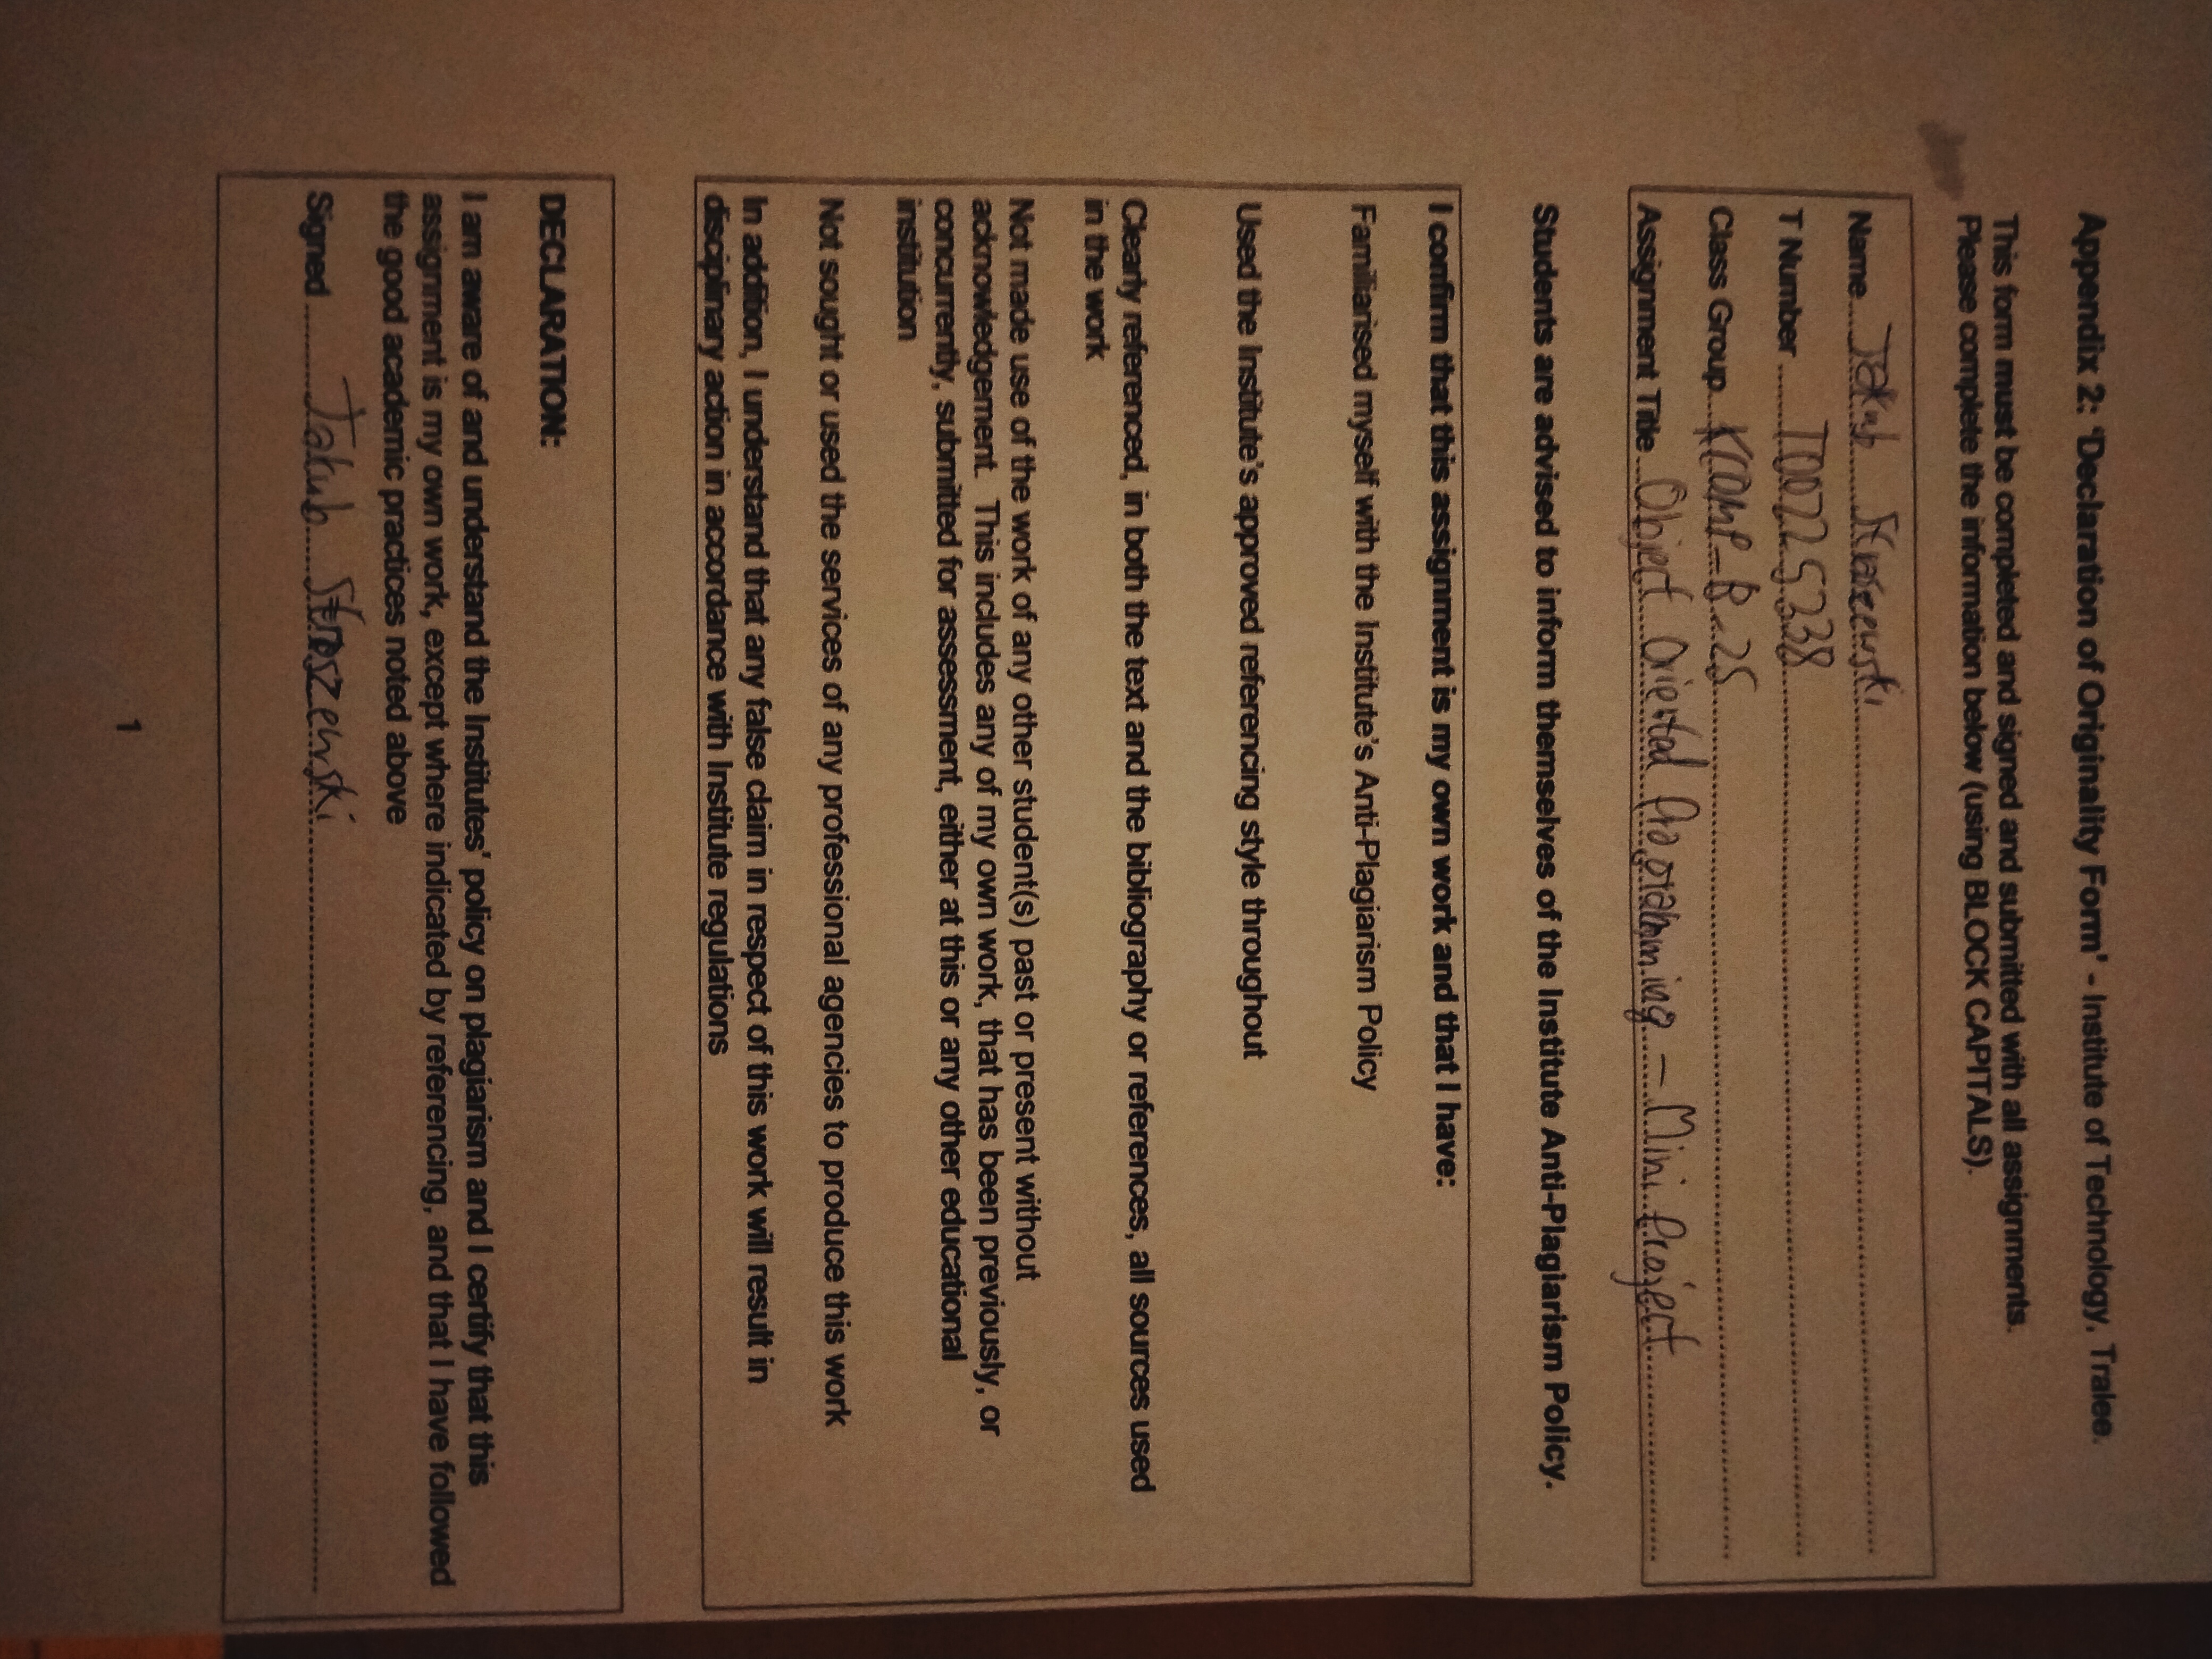 Appendix 2: ‘Declaration of Originality Form’ - Institute of Technology, Tralee.
This form must be completed and signed and submitted with all assignments.
Please complete the information below (using BLOCK CAPITALS).
Name Jakub Stroszewski
T Number T00225338
Class Group KCOMP_B_25
Assignment Title Object Oriented Programming - Mini Project
Students are advised to inform themselves of the Institute Anti-Plagiarism Policy.
I confirm that this assignment is my own work and that I have:
Familiarised myself with the Institute’s Anti-Plagiarism Policy
Used the Institute’s approved referencing style throughout
Clearly referenced, in both the text and the bibliography or references, all sources used
in the work
Not made use of the work of any other student(s) past or present without
acknowledgement. This includes any of my own work, that has been previously, or
concurrently, submitted for assessment, either at this or any other educational
institution
Not sought or used the services of any professional agencies to produce this work
In addition, I understand that any false claim in respect of this work will result in
disciplinary action in accordance with Institute regulations
DECLARATION:
I am aware of and understand the Institutes’ policy on plagiarism and I certify that this
assignment is my own work, except where indicated by referencing, and that I have followed
the good academic practices noted above
Signed Jakub Stroszewski
1